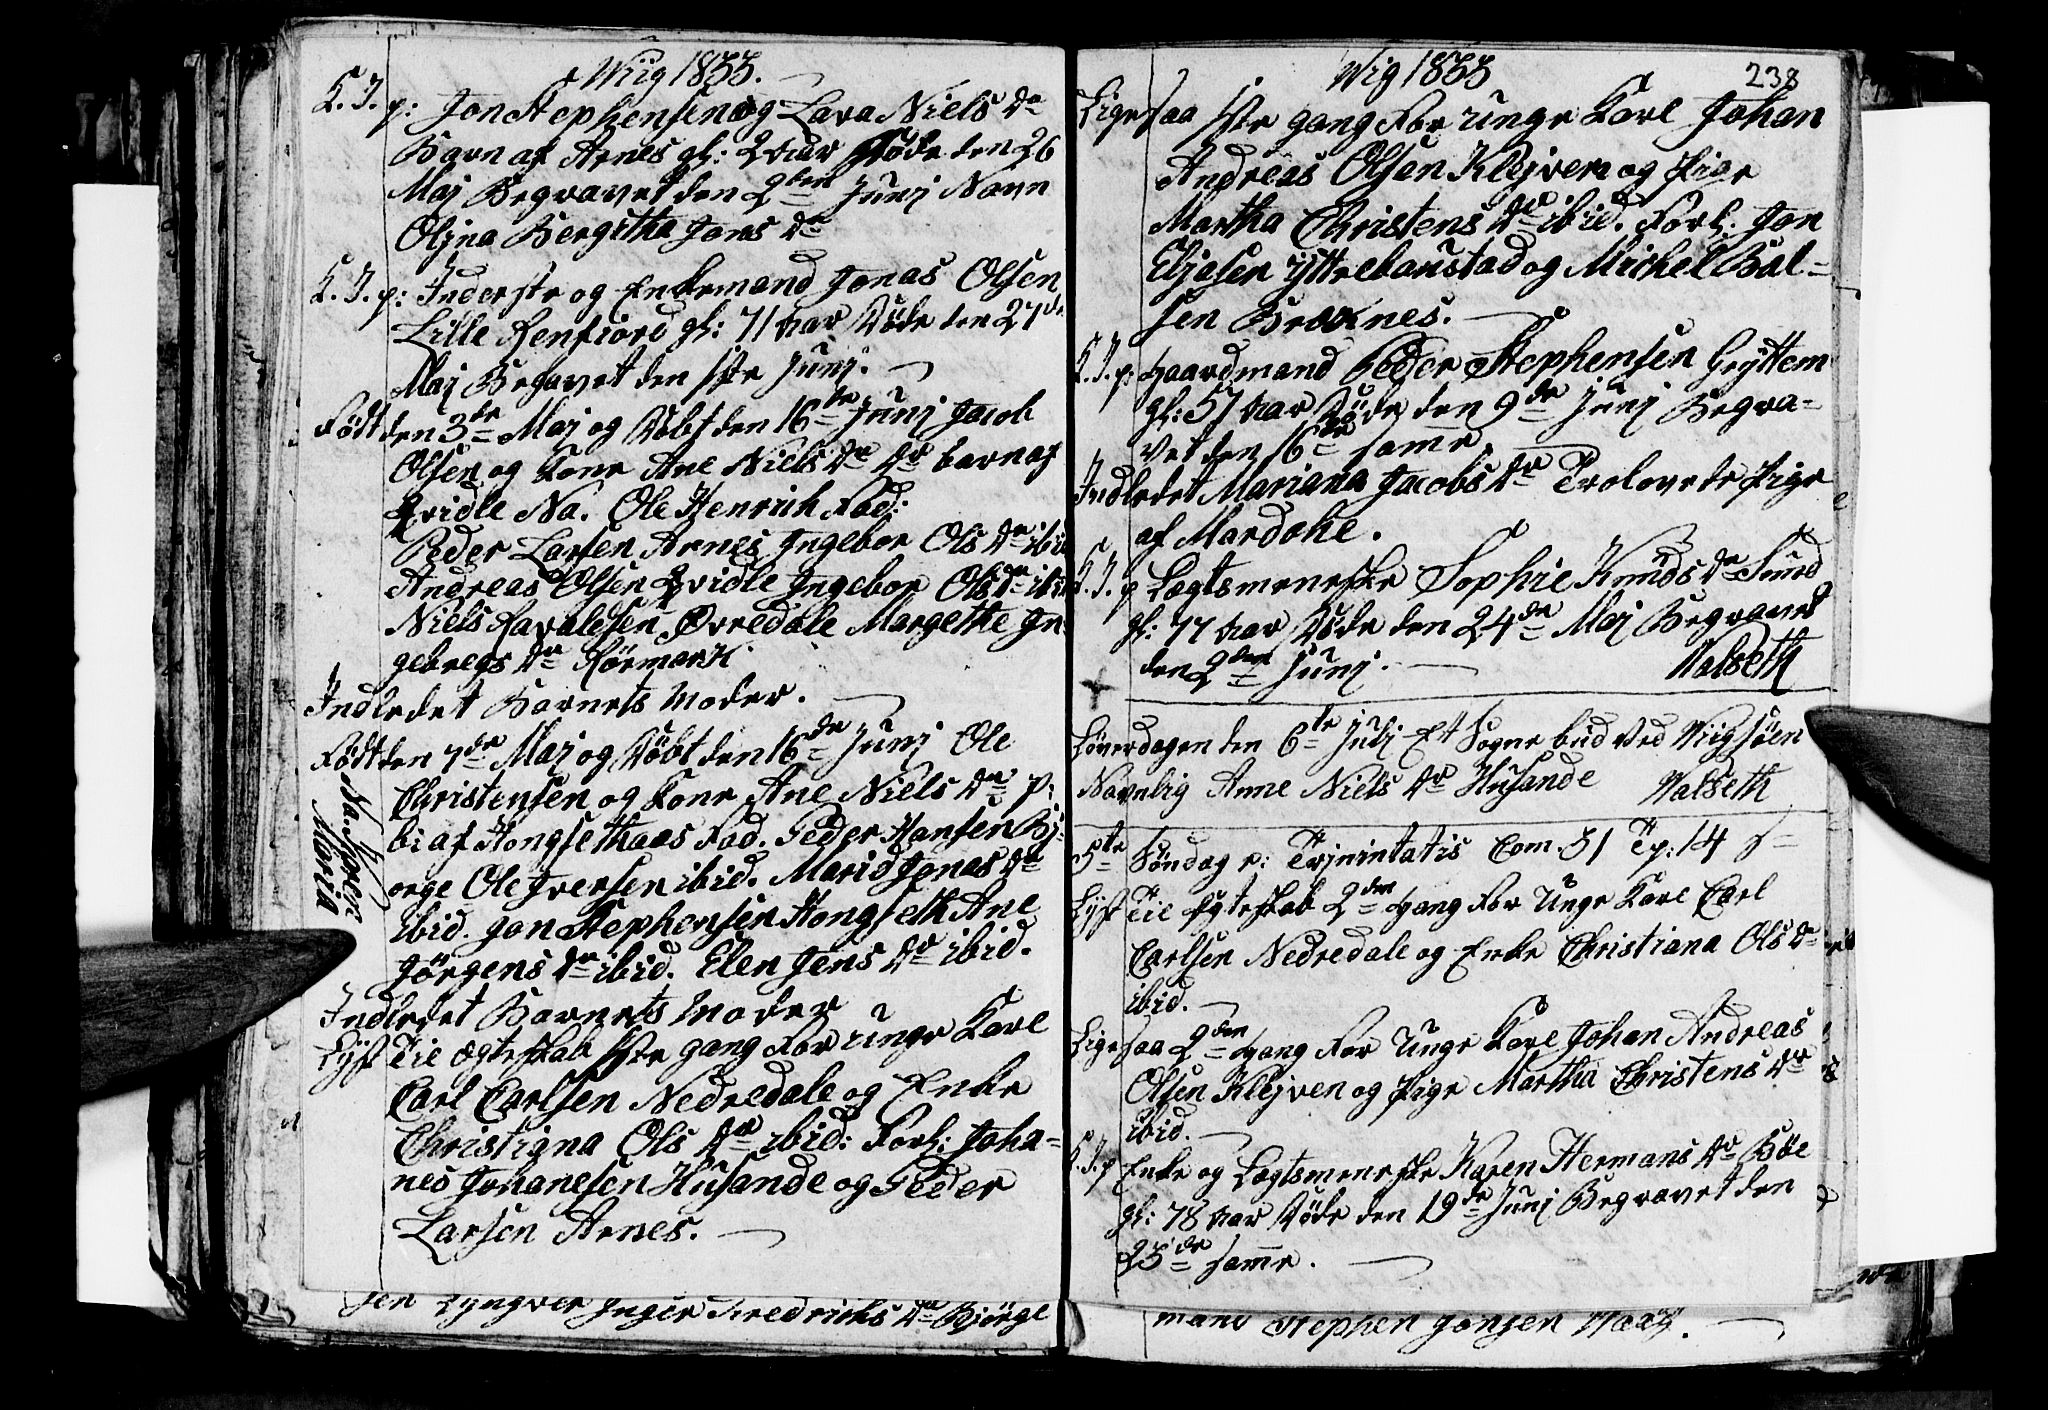 Wiig 1833.
K. J. p: Jon Stephensen og Lava Niels dr
Barn af Arnes gl: 2 Aar Døde den 26
Maj Begravet den 2den Junj Navn
Oljna Bergitha Jons dr
K. J. p: Inderste og Enkemand Jonas Olsen
Lille Renfiord gl: 71 Aar Døde den 27de
Maj Begavet den 1ste Junj.
Født den 3de Maj og Døbt den 16de Junj Jacob
Olsen og Kone Ane Niels dr dr barn af
Qvidle Na. Ole Henrich Fad:
Peder Larsen Arnes Ingebor Ols dr ibid
Andreas Olsen Qvidle Ingebor Ols dr ibid
Niels Ravaldsen Øvredale Margethe In
gebregs dr Rørmark
Indledet Barnets Moder.
Født den 7de Maj og Døbt den 16de Junj Ole
Christensen og Kone Ane Niels dr p:
bi af Hongsethaas Fad. Peder Hansen Bj-
Na. Soren Maria
orge Ole Iversen ibid. Marid Jonas dr
ibid. Jon Stephensen Hongseth Ane
Jørgens dr ibid. Elen Jens dr ibid.
Indledet Barnets Moder
Lyst Til Ægteskab 1ste gang For unge Karl
Carl Carlsen Nedredale og Enke
Christiana Ols dr ibid: Forl: Joha-
nes Johanesen Husande og Peder
Larsen Arnes.
sen Lyngver Inger Fredrichs dr Bjørge
Wig 1833
238
Ligesaa 1ste gang For unge Karl Johan
Andreas Olsen Klejven og Pige
Martha Christens dr ibid. Forl: Jon
Eljasen Yttrehaustad og Michel Bal-
sen Bræknes.
K. J. p: Gaardmand Peder Stephensen Gryttem
gl: 57 Aar Døde den 9de Junj Begra-
vet den 16de samme.
Indledet Mariana Jacobs dr Trolovede Pige
af Mardohe.
K. J. p Lægtsmeneske Sophie Knuds dr Sund
gl: 77 Aar Døde den 24de Maj Begravet
den 2den Junj. Valseth
Løverdagen den 6te Julj Et Sognebud Ved Wiigsøen
Navnlig Anne Niels dr Husande Valseth
5te Søndag p: Trinintatis Com. 31 Tp: 14 s
Lyst Til Egteskab 2den Gang For Unge Karl Carl
Carlsen Nedredale og Enke Christiana Ols dr
ibid.
Ligesaa 2den Gang For Unge Karl Johan Andreas
Olsen Klejven og Pige Martha Christens dr
ibid.
K. J. p Enke og Lægtsmeneske Karen Hermans dr Bøe
gl: 78 Aar Døde den 19de Junj Begravet den
25de samme.
mand Stephen Jonsen